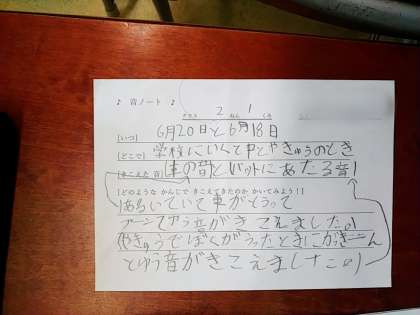 ♪ 音ノート ♪
2 ねん 1 くみ
[いつ] 6月20日と6月18日
[どこで] 学校にいくと中とやきゅうのとき
[きこえた 音] 車の音とバットにあたる音
[どのような かんじで きこえてきたのか かいてみよう!]
あるいていて車がとうって
ブーンてゆう音がきこえました。
やきゅうでぼくがうったときにがきーん
とゆう音がきこえました。